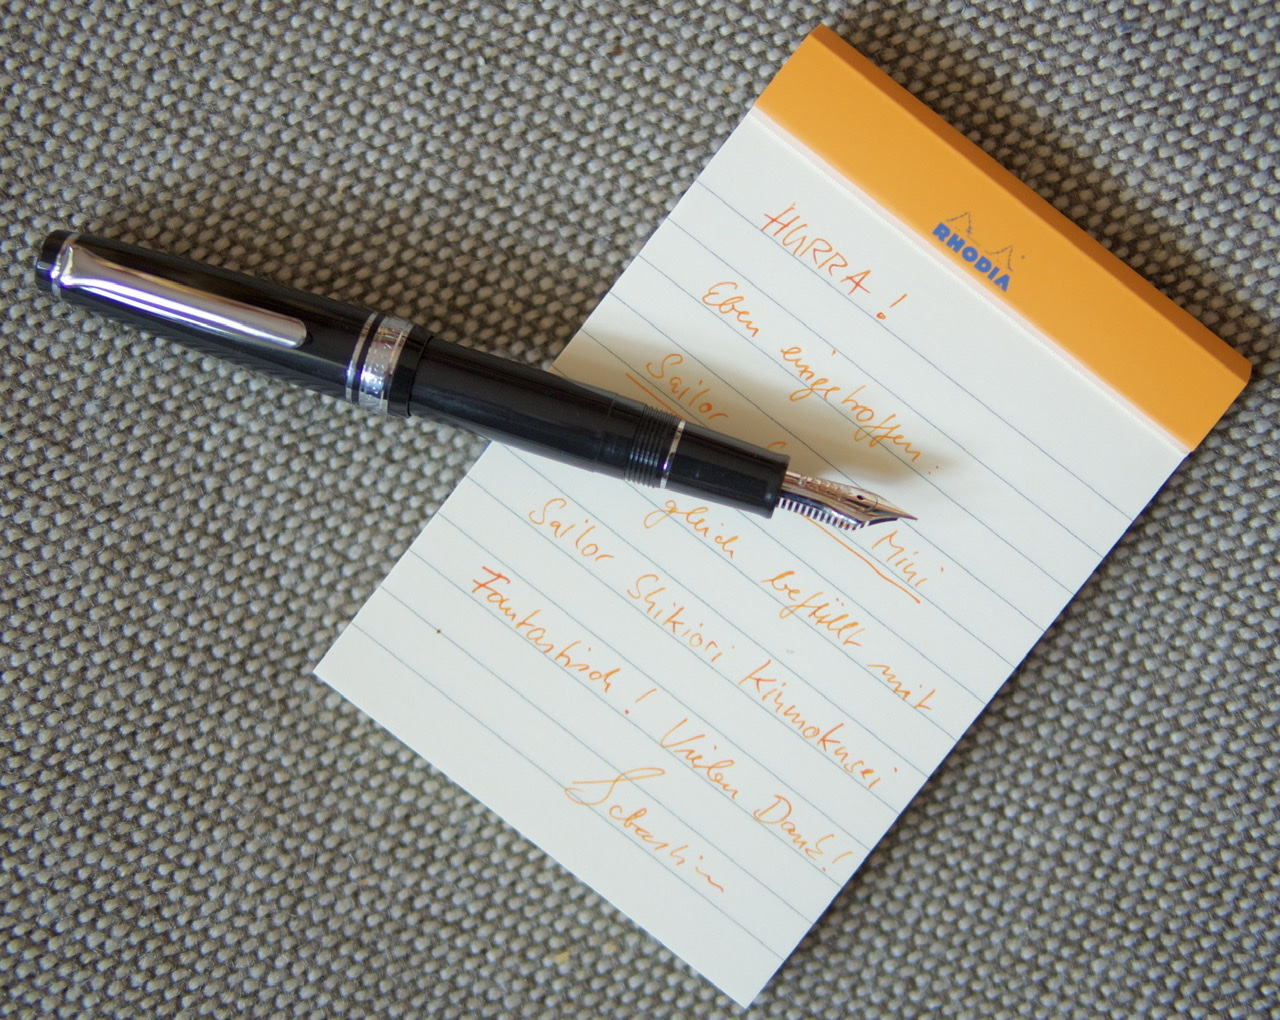 RHODIA
HURRA!
Eben eingetroffen:
Sailor Mini
gleich befüllt mit
Sailor Shikiori Kinmokusei
Fantastisch! Vielen Dank!
Sebastian